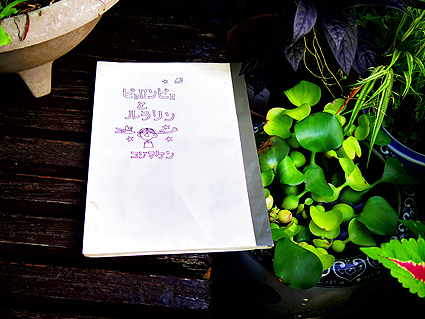 ピョルンピョ
と
ルラリン
コジマケン